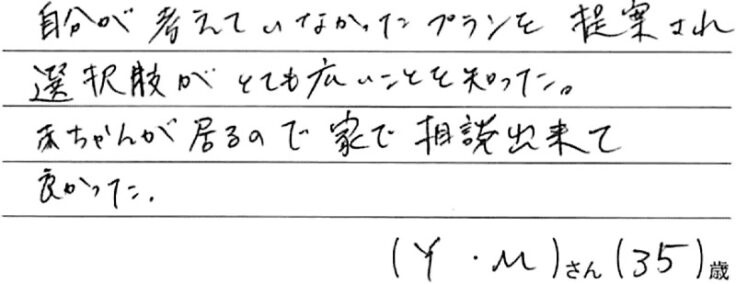 自分が考えていなかったプランを提案され
選択肢がとても広いことを知った。
赤ちゃんが居るので家で相談出来て
良かった.
(Y・M)さん(35)歳